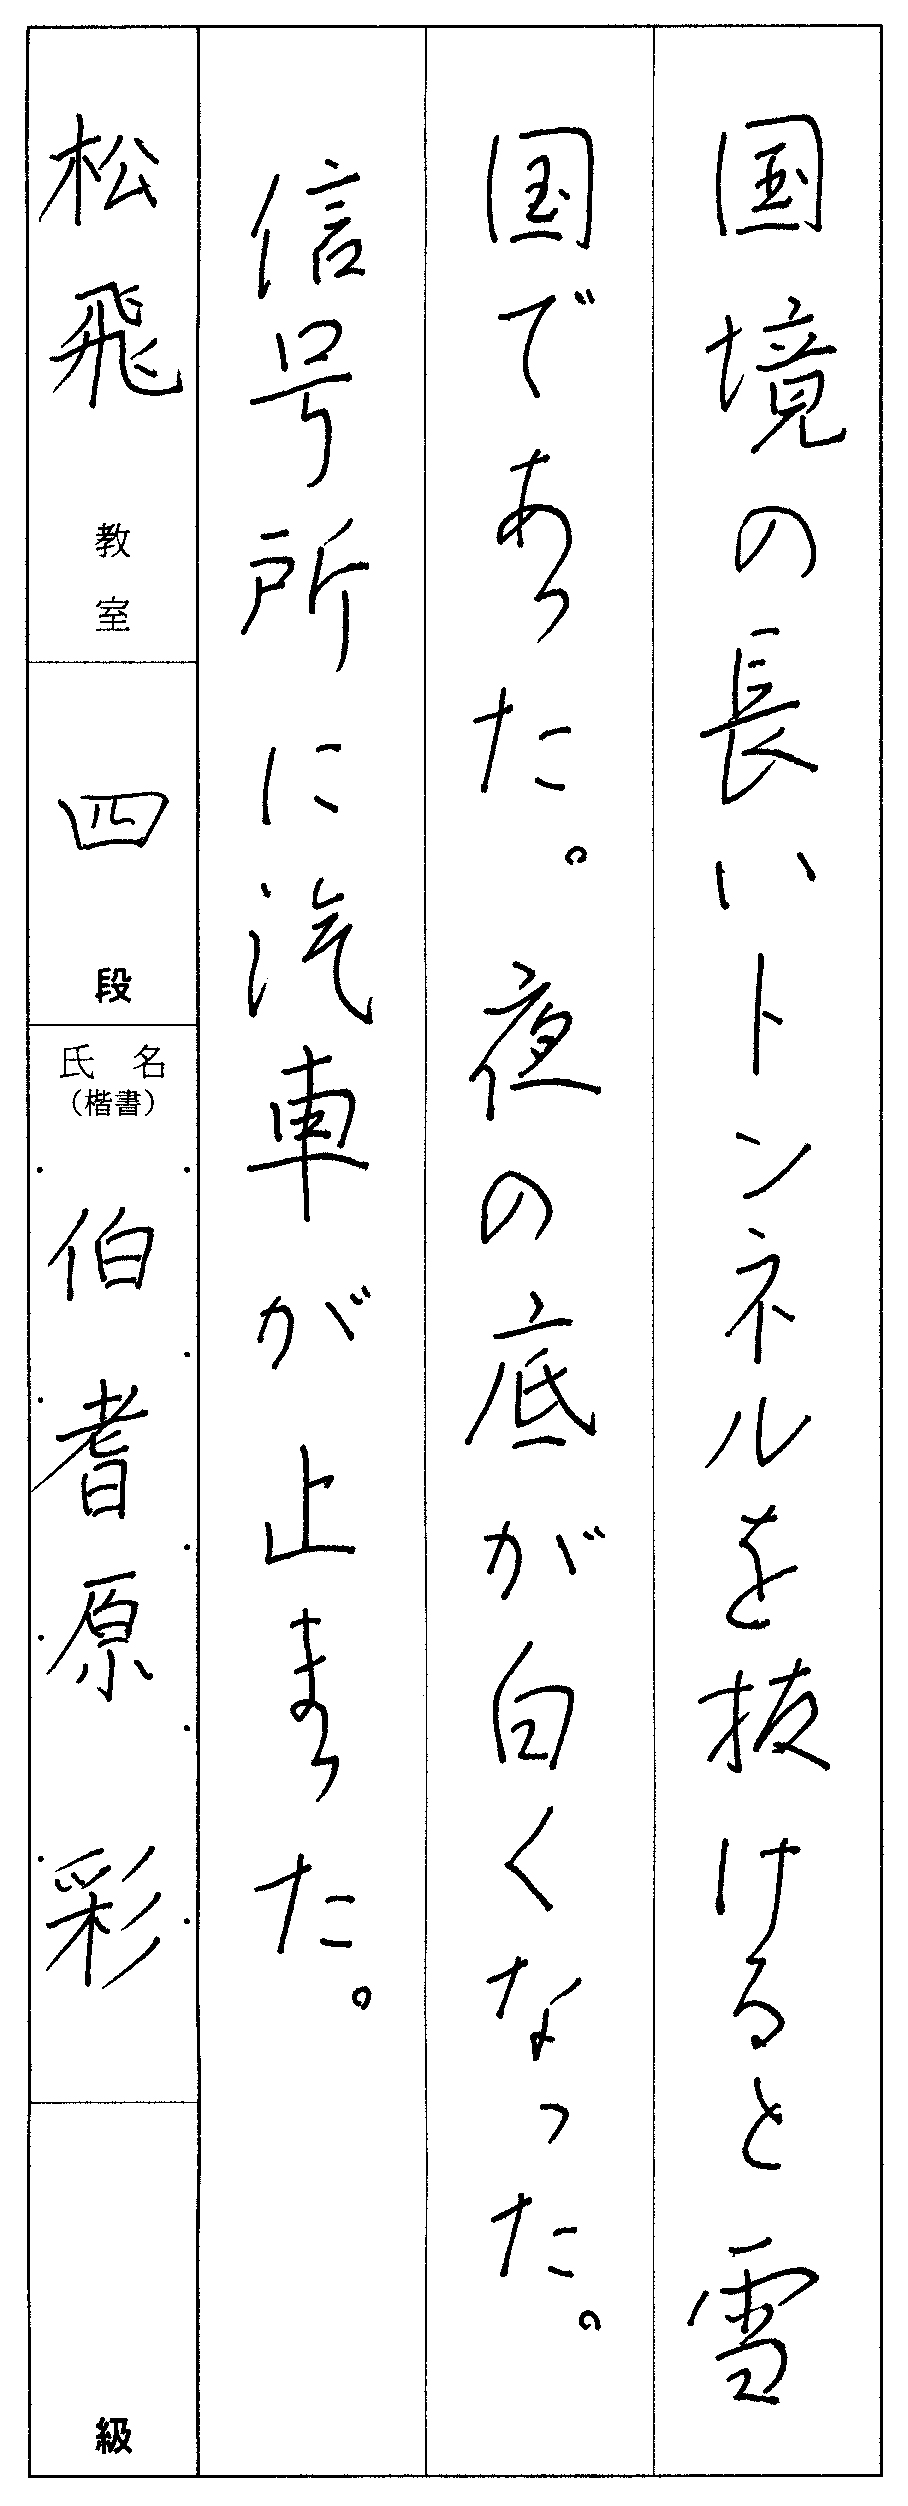 国境の長いトンネルを抜けると雪
国であった。夜の底が白くなった。
信号所に汽車が止まった。
松飛教室
四段
氏名
（楷書）
伯耆原 彩
級